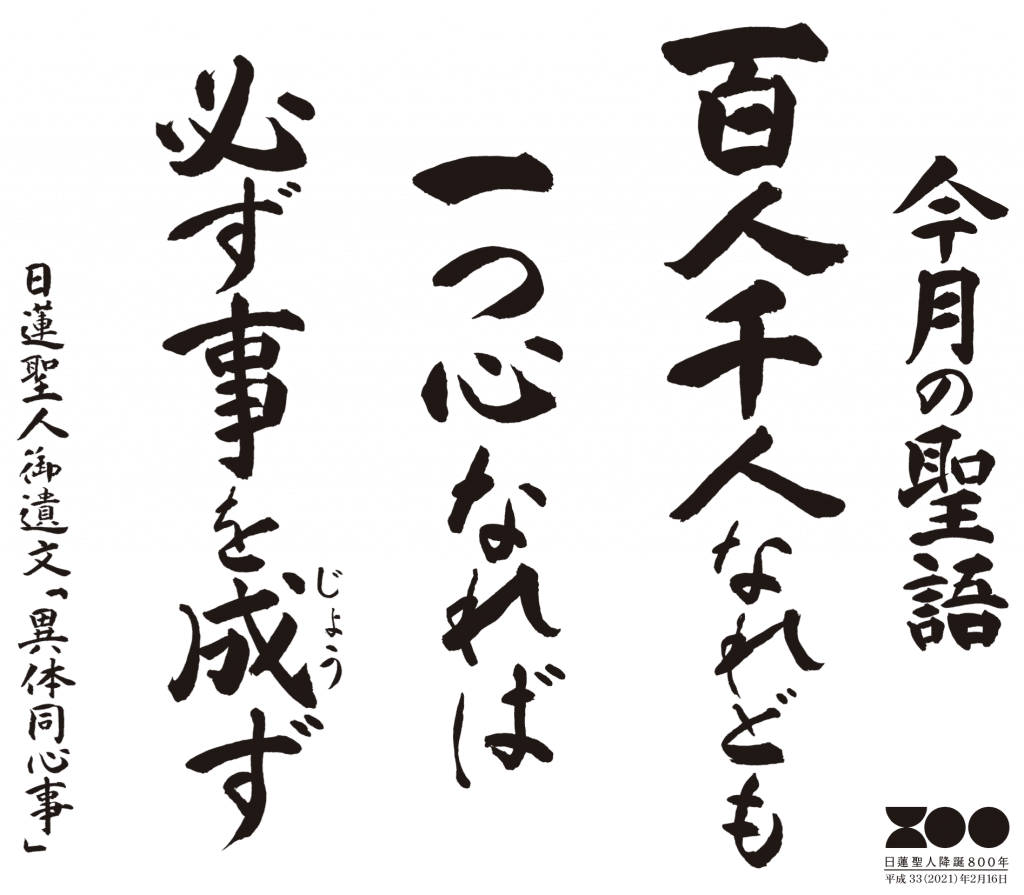 今月の聖語
百人千人なれども
一つ心なれば
必ず事を成ず
じょう
日蓮聖人御遺文「異体同心事」
800
日蓮聖人降誕800年
平成33(2021)年2月16日